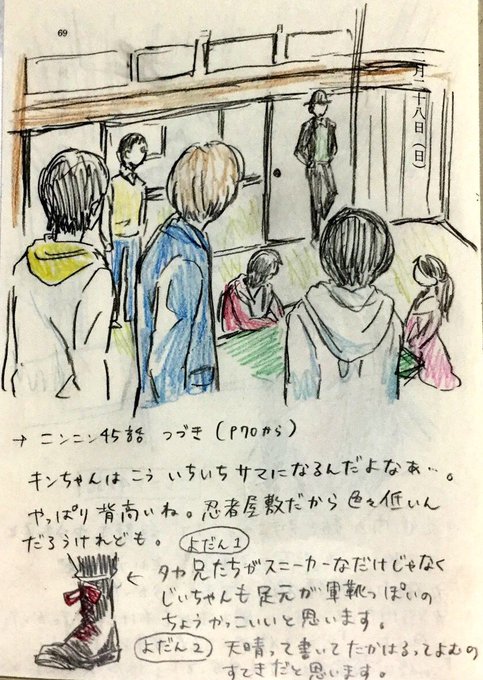 69
一月二十八日(日)
→ ニンニン45話 つづき (P70から)
キンちゃんは こう いちいち サマになるんだよなぁ…。
やっぱり 背高いね。忍者屋敷だから 色々低いん
だろうけれども。 よだん1
← タカ兄たちがスニーカーなだけじゃなく
じいちゃんも 足元が 軍靴っぽいの
ちょうかっこいいと思います。
よだん2 天晴って書いてたかはるってよむの
すてきだと思います。